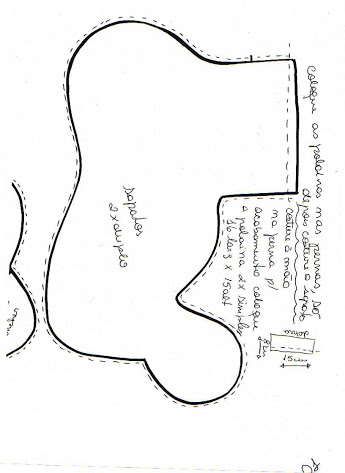 coloque as polainas nas pernas, só
depois costure o sapato
costure à mão
na perna p/
acabamento coloque
a polaina 2x simples
16 larg x 15 alt
dobra
15cm
8cm
sapatos
2x duplo